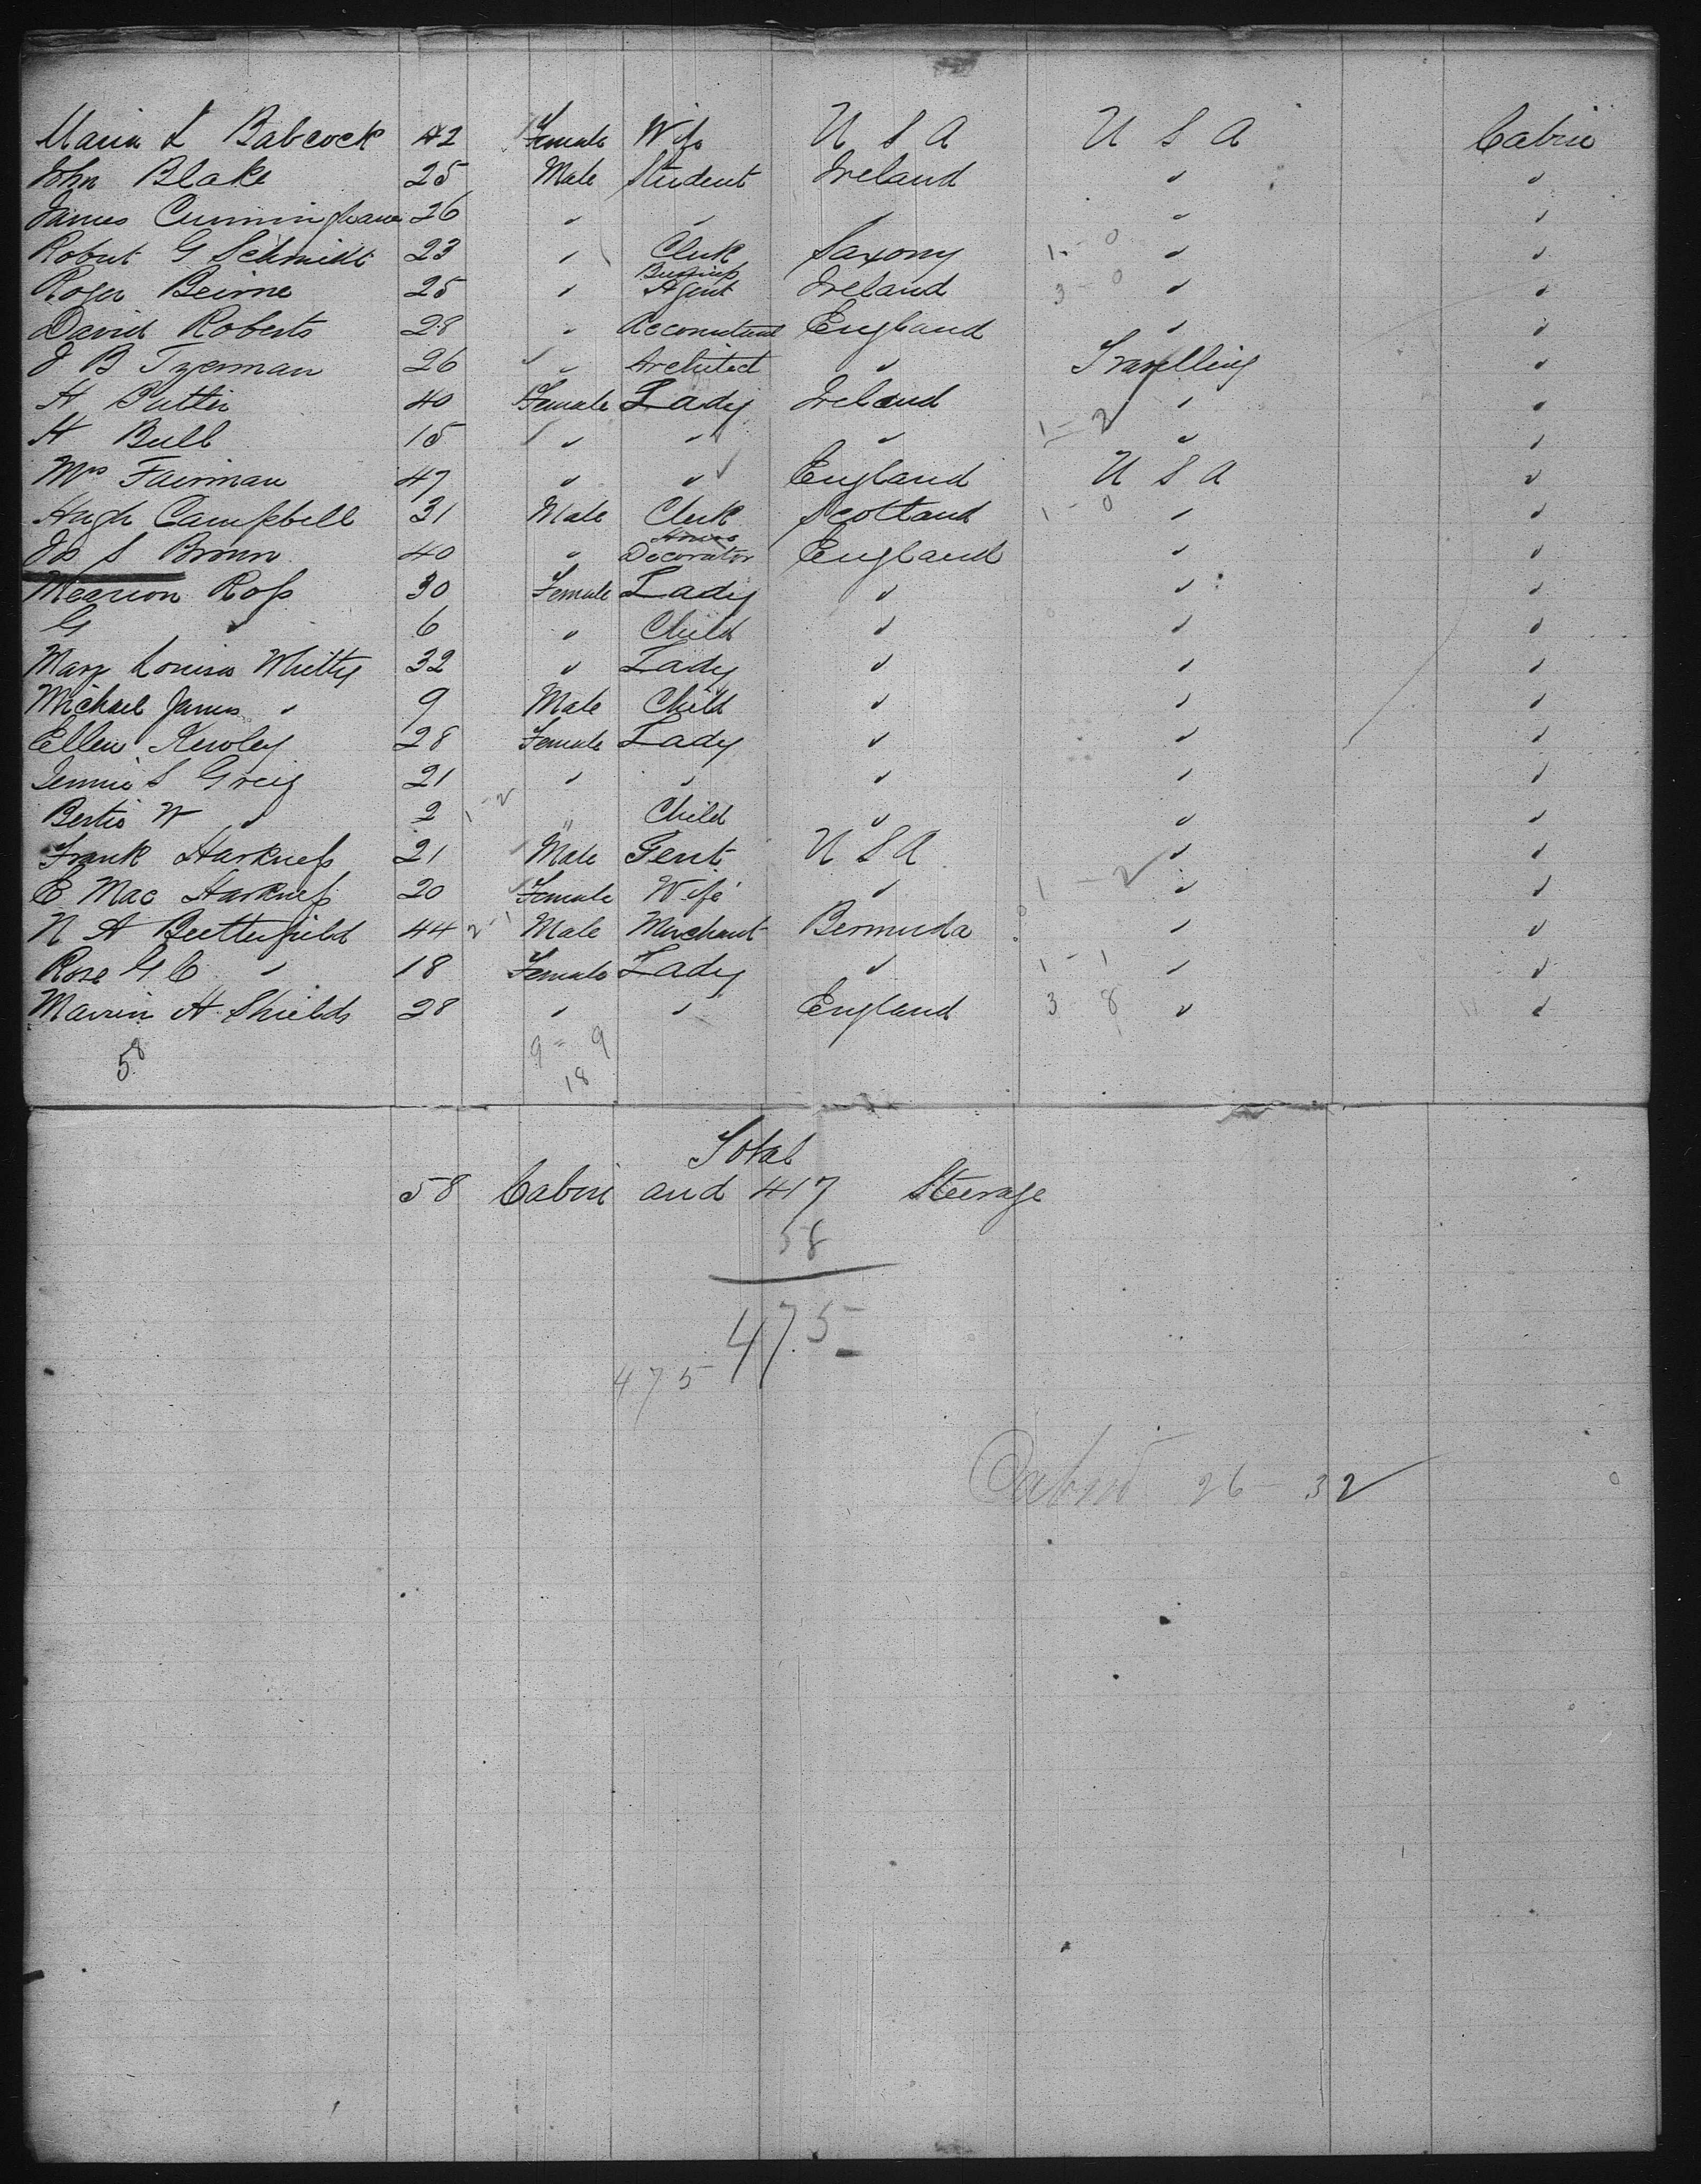 Maria L Babcock 42 Female Wife U S A U S A Cabin
John Blake 25 Male Student Ireland " "
James Cunningham 26 " " " "
Robert G Schmidt 23 " Clerk Saxony 1-0 " "
Roger Beirne 25 " Business Agent Ireland 3-0 " "
David Roberts 28 " Accountant England " "
J B Tyerman 26 " Architect " Travelling "
H Buttin 40 Female Lady Ireland " "
H Bull 15 " " " 1-2 " "
Mrs Fairman 47 " " England U S A "
Hugh Campbell 31 Male Clerk Scotland 1-0 " "
Jas S Brown 40 " Decorator England " "
Mearion Ross 30 Female Lady " " "
G " 6 " Child " " "
Mary Louisa Whitty 32 " Lady " " "
Michael James " 9 Male Child " " "
Ellen Kewley 28 Female Lady " " "
Jennie S Greig 21 " " " " "
Bertie W " 2 1-2 " Child " " "
Frank Harkness 21 Male Gent U S A " "
E Mac Harkness 20 Female Wife " 1-2 " "
N A Butterfield 44 2-1 Male Merchant Bermuda " "
Rose G C " 18 Female Lady " 1-1 " "
Marrin H Shields 28 " " England 3 8 " "
58 9-9
18
Total
58 Cabin and 417 Steerage
58
475
475
Cabin 26-32